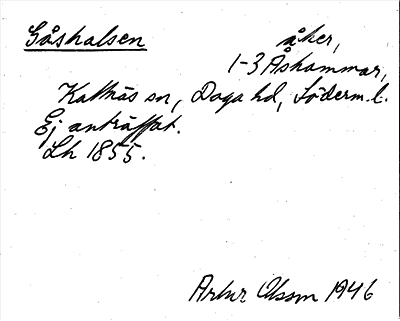 Gåshalsen åker,
1-3 Åshammar,
Kattnäs sn, Daga hd, Söderm. l.
Ej anträffat.
Lh 1855.
Artur Olsson 1946